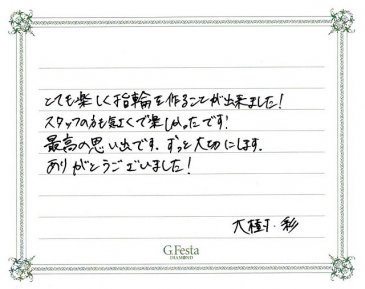 とても楽しく指輪を作ることが出来ました!
スタッフの方も気さくで楽しかったです!
最高の思い出です.ずっと大切にします.
ありがとうございました!
大樹・彩
G.Festa
DIAMOND